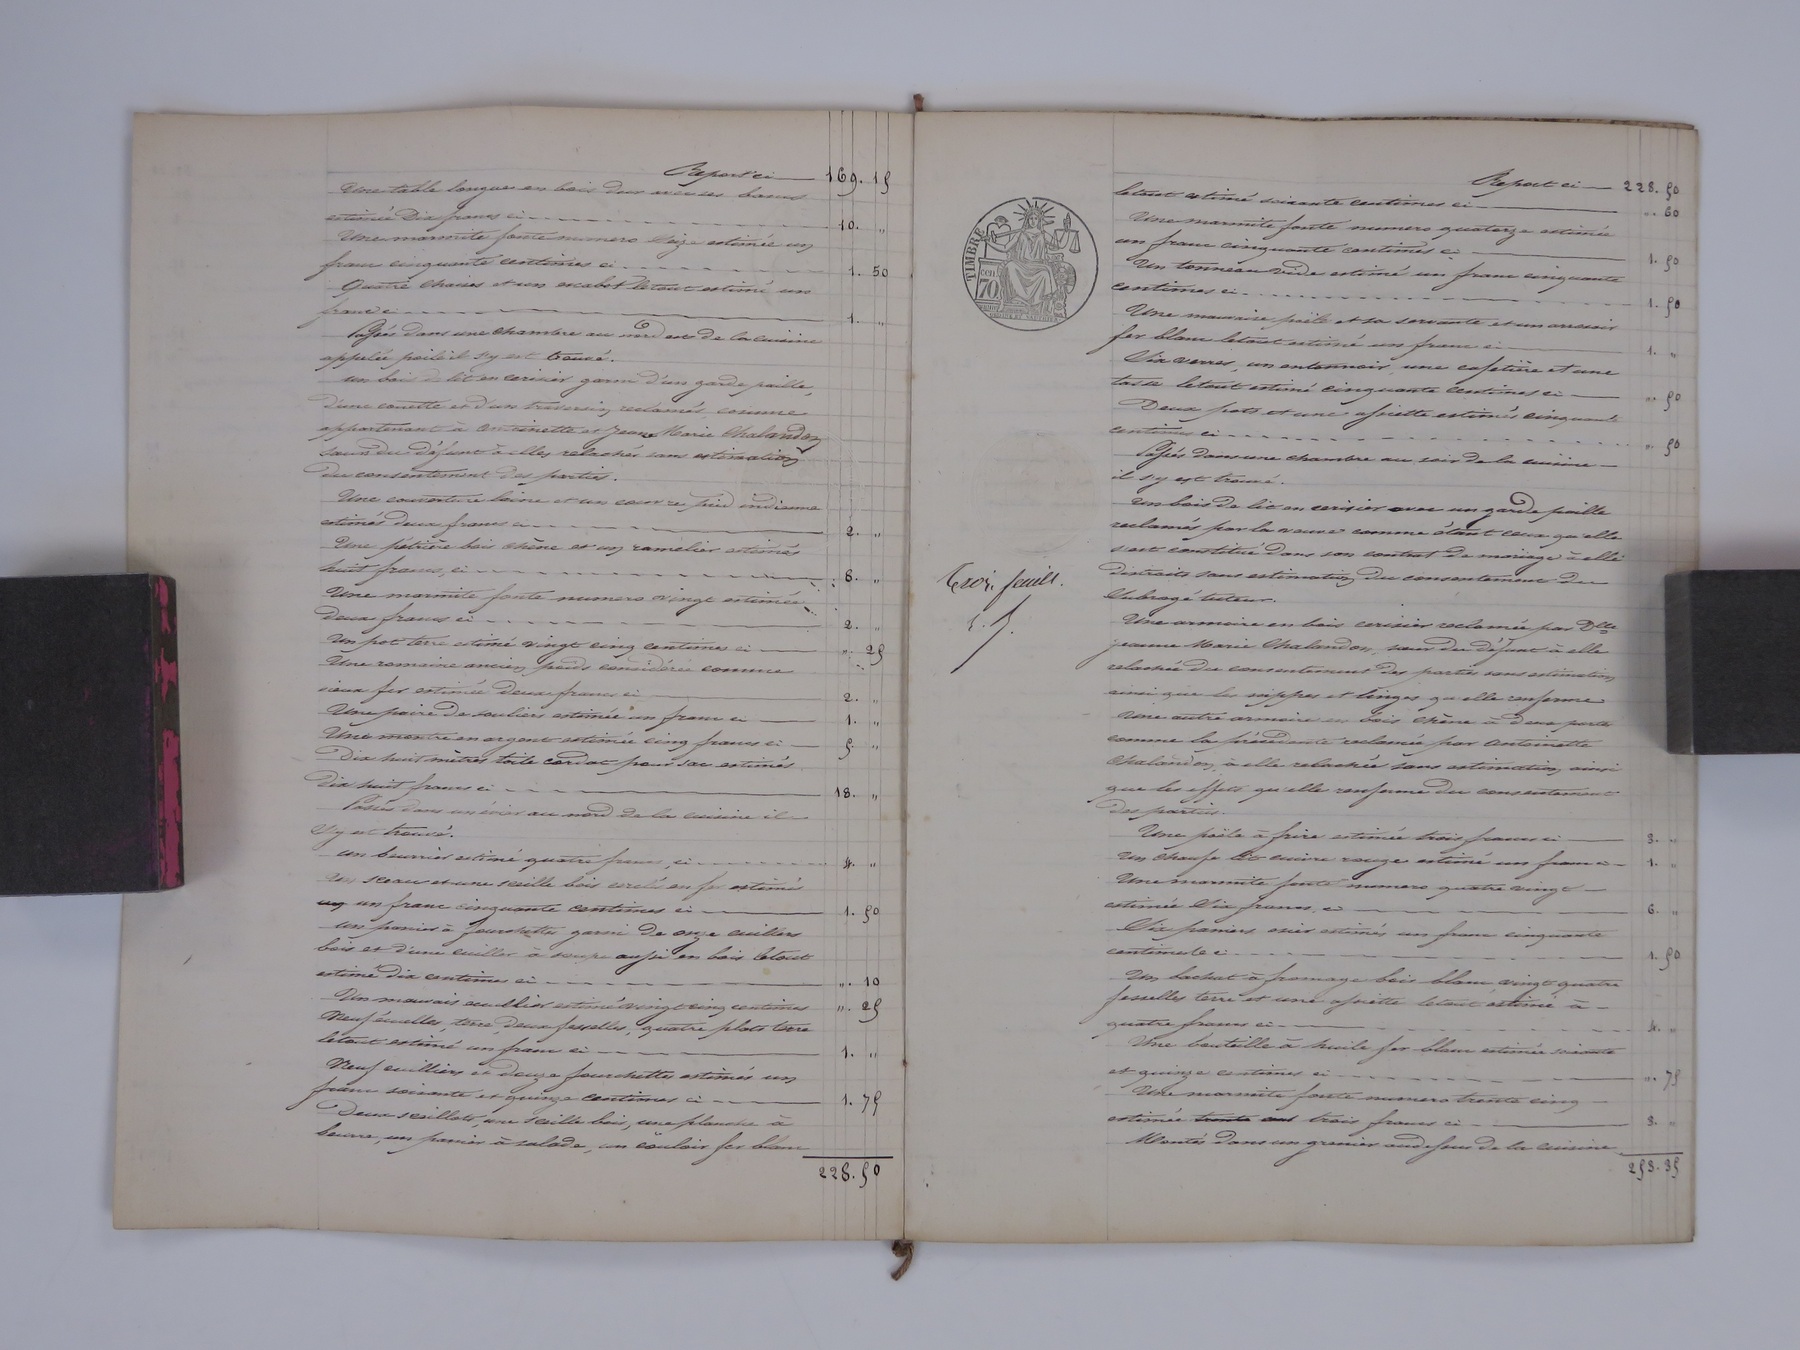 Report ci — 169. 15
Une table longue en bois dur avec ses bancs
estimée Dix francs ci 10. "
Une marmite fonte numero seize estimée un
franc cinquante centimes ci 1. 50
Quatre chaises et un escabot le tout estimé un
franc ci 1. "
Passés dans une chambre au nord est de la cuisine
appelée poile il s'y est trouvé.
un bois de lit en cerisier garni d'un garde paille,
d'une couette et d'un traversin, reclamés comme
appartenant à Antoinette et Jeane Marie Chalandon
sœurs du défunt à elles relachés sans estimation
du consentement des parties.
Une couverture laine et un couvre pied indienne
estimés deux francs ci 2. "
Une pétrière bois chêne et un ramelier estimés
huit francs, ci 8. "
Une marmite fonte numero vingt estimée
deux francs ci 2. "
Un pot terre estimé vingt cinq centimes ci ". 25
Une romaine ancien poids considérée comme
vieux fer estimée deux francs ci 2. "
Une paire de souliers estimée un franc ci 1. "
Une montre en argent estimée cinq francs ci 5. "
Dix huit mètres toile cordat pour sac estimés
dix huit francs ci 18. "
Passés dans un évier au nord de la cuisine il
s'y est trouvé.
un beurrier estimé quatre francs, ci 4. "
Un sceau et une seille bois cerclés en fer estimés
un franc cinquante centimes ci 1. 50
un panier à fourchettes garni de onze cuillers
bois et d'une cuiller à soupe aussi en bois le tout
estimé dix centimes ci ". 10
Un mauvais estimé vingt cinq centimes ". 25
Neuf écuelles, terre, deux fesselles, quatre plats terre
le tout estimé un franc ci 1. "
Neuf cuilliers et douze fourchettes estimés un
franc soixante et quinze centimes ci 1. 75
Deux seillots, une seille bois, une planche à
beurre, un panier à salade, un couloir fer blanc
228. 50
Report ci — 228. 50
le tout estimé soixante centimes ci ". 60
Une marmite fonte numero quatorze estimée
un franc cinquante centimes ci 1. 50
Un tonneau vide estimé un franc cinquante
centimes ci 1. 50
Une mauvaise poële et sa servante et un arrosoir
fer blanc le tout estimé un franc ci 1. "
Six verres, un entonnoir, une cafetière et une
tasse le tout estimé cinquante centimes ci ". 50
Deux pots et une assiette estimés cinquante
centimes ci ". 50
Passés dans une chambre au soir de la cuisine
il s'y est trouvé.
Un bois de lit en cerisier avec un garde paille
reclamés par la veuve comme étant ceux qu'elle
s'est constitué dans son contrat de mariage à elle
distraits sans estimation du consentement du
subrogé tuteur.
Une armoire en bois cerisier reclamée par Dlle
jeanne Marie Chalandon, sœur du défunt à elle
relachée du consentement des parties sans estimation
ainsi que les nippes et linges qu'elle renferme
Une autre armoire en bois chêne à deux portes
comme la précédente reclamée par Antoinette
Chalandon, à elle relachée sans estimation, ainsi
que les effets qu'elle renferme du consentement
des parties.
Une poële à frire estimée trois francs ci 3. "
Un chauffe lit cuivre rouge estimé un franc ci 1. "
Une marmite fonte numero quatre vingt
estimée six francs, ci 6. "
Six paniers osier estimés un franc cinquante
centimes ci 1. 50
Un bachat à fromage bois blanc, vingt quatre
fesselles terre et une assiette le tout estimé à
quatre francs ci 4. "
Une bouteille à huile fer blanc estimée soixante
et quinze centimes ci ". 75
Une marmite fonte numero trente cinq
estimée trois francs ci 3. "
Montés dans un grenier au dessus de la cuisine
253. 35
TIMBRE
cen
70
Troi. feuill.